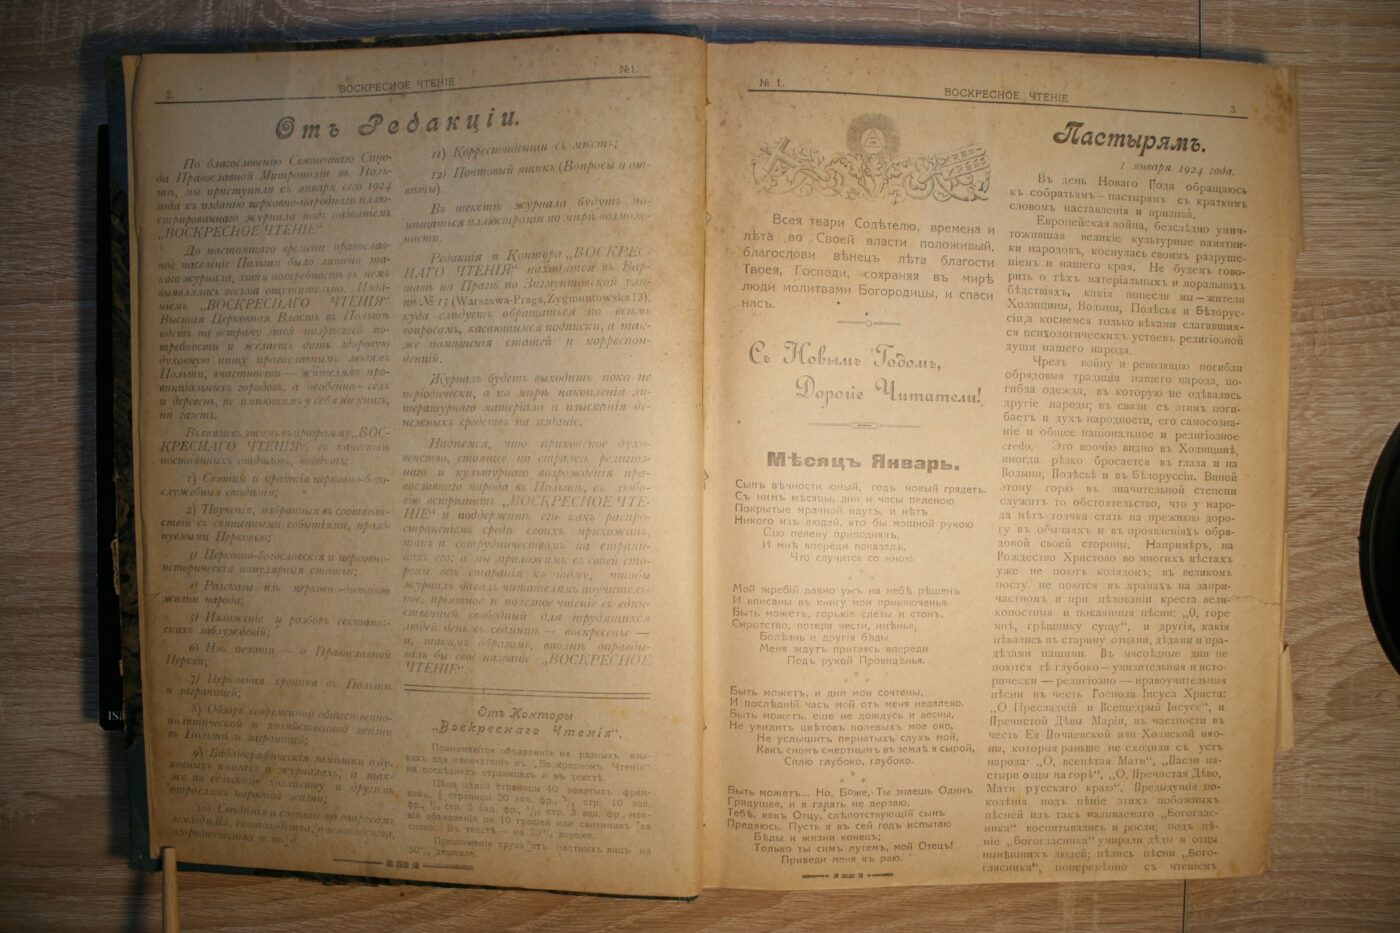 2.
ВОСКРЕСНОЕ ЧТЕНІЕ
№1.
Отъ Редакціи.
По благословенію Священнаго Сино-
да Православной Митрополіи въ Поль-
шѣ, мы приступили съ января сего 1924
года къ изданію церковно-народнаго иллю-
стрированнаго журнала подъ названіемъ
„ВОСКРЕСНОЕ ЧТЕНІЕ“
До настоящаго времени православ-
ное населеніе Польши было лишено та-
кого журнала, хотя потребность въ немъ
выявлялась весьма ощутительно. Изда-
ніемъ „ВОСКРЕСНАГО ЧТЕНІЯ“
Высшая Церковная Власть въ Польшѣ
идетъ на встрѣчу этой назрѣвшей по-
требности и желаетъ дать здоровую
духовную пищу православнымъ людямъ
Польши, въ частности — жителямъ про-
винціальныхъ городовъ, а особенно — селъ
и деревень, не имѣющимъ у себя ни книгъ,
ни газетъ.
Въ связи съ этимъ въ программу „ВОС-
КРЕСНАГО ЧТЕНІЯ“, въ качествѣ
постоянныхъ отдѣловъ, войдутъ:
1) Святцы и краткія церковно-бого-
служебныя свѣдѣнія;
2) Поученія, избранныя въ соотвѣт-
ствіи съ священными событіями, празд-
нуемыми Церковью;
3) Церковно-богословскія и церковно-
историческія популярныя статьи;
4) Разсказы изъ церковно-бытовой
жизни народа;
5) Изложеніе и разборъ сектант-
скихъ заблужденій;
6) Изъ печати — о Православной
Церкви;
7) Церковная хроника въ Польшѣ
и заграницей;
8) Обзоръ современной общественно-
политической и хозяйственной жизни
въ Польшѣ и заграницей;
9) Библіографическія замѣтки о ду-
ховныхъ книгахъ и журналахъ, а так-
же по сельскому хозяйству и другимъ
отраслямъ народной жизни;
10) Свѣдѣнія и совѣты по вопросамъ
земледѣлія, скотоводства, пчеловодства,
огородничества и т. д.
11) Корреспонденціи съ мѣстъ;
12) Почтовый ящикъ (Вопросы и от-
вѣты).
Въ текстѣ журнала будутъ по-
мѣщаться иллюстраціи по мѣрѣ возмож-
ности.
Редакція и Контора „ВОСКРЕС-
НАГО ЧТЕНІЯ“ находятся въ Вар-
шавѣ на Прагѣ по Зигмунтовской ули-
цѣ № 13 (Warszawa-Praga, Zygmuntowska 13),
куда слѣдуетъ обращаться по всѣмъ
вопросамъ, касающимся подписки, а так-
же помѣщенія статей и корреспон-
денцій.
Журналъ будетъ выходить пока не
періодически, а по мѣрѣ накопленія ли-
тературнаго матеріала и изысканія де-
нежныхъ средствъ на изданіе.
Надѣемся, что приходское духо-
венство, стоящее на стражѣ религіоз-
наго и культурнаго возрожденія пра-
вославнаго народа въ Польшѣ, съ любо-
вію встрѣтитъ „ВОСКРЕСНОЕ ЧТЕ-
НІЕ“ и поддержитъ его какъ распро-
страненіемъ среди своихъ прихожанъ,
такъ и сотрудничествомъ на страни-
цахъ его; а мы приложимъ съ своей сто-
роны всѣ старанія къ тому, чтобы
журналъ давалъ читателямъ поучитель-
ное, пріятное и полезное чтеніе въ един-
ственный свободный для трудящихся
людей день въ седмицѣ — воскресенье —
и, такимъ образомъ, вполнѣ оправды-
валъ бы свое названіе „ВОСКРЕСНОЕ
ЧТЕНІЕ“.
Отъ Конторы
„Воскреснаго Чтенія“.
Принимаются объявленія на разныхъ язы-
кахъ для напечатанія въ „Воскресномъ Чтеніи“
на послѣднихъ страницахъ и въ текстѣ.
Цѣна цѣлой страницы 40 золотыхъ фран-
ковъ, ½ страницы 20 зол. фр., ¼ стр. 10 зол.
фр., ⅛ стр. 5 зол. фр., 1/16 стр. 3 зол. фр., мел-
кія объявленія по 10 грошей или сантимовъ за
слово. Въ текстѣ — на 25% дороже.
Предложенія труда отъ частныхъ лицъ на
50% дешевле.
№ 1.
ВОСКРЕСНОЕ ЧТЕНІЕ
3.
Всея твари Содѣтелю, времена и
лѣта во Своей власти положивый,
благослови вѣнецъ лѣта благости
Твоея, Господи, сохраняя въ мирѣ
люди молитвами Богородицы, и спаси
насъ.
Съ Новымъ Годомъ,
Дорогіе Читатели!
Мѣсяцъ Январь.
Сынъ вѣчности юный, годъ новый грядетъ.
Съ нимъ мѣсяцы, дни и часы пеленою
Покрытые мрачной идутъ, и нѣтъ
Никого изъ людей, кто бы мощной рукою
Сію пелену приподнялъ,
И мнѣ впереди показалъ,
Что случится со мною.
* * *
Мой жребій давно ужъ на небѣ рѣшенъ
И вписаны въ книгу мои приключенья.
Быть можетъ, горькія слезы и стонъ,
Сиротство, потеря чести, имѣнья,
Болѣзнь и другія бѣды
Меня ждутъ притаясь впереди
Подъ рукой Провидѣнья.
* * *
Быть можетъ, и дни мои сочтены,
И послѣдній часъ мой отъ меня недалеко.
Быть можетъ, еще не дождусь и весны,
Не увидитъ цвѣтовъ полевыхъ мое око,
Не услышитъ пернатыхъ слухъ мой,
Какъ сномъ смертнымъ въ землѣ я сырой,
Сплю глубоко, глубоко.
* * *
Быть можетъ... Но, Боже, Ты знаешь Одинъ
Грядущее, и я гадать не дерзаю,
Тебѣ, какъ Отцу, слѣпотствующій сынъ
Предаюсь. Пусть я въ сей годъ испытаю
Бѣды и жизни конецъ;
Только ты симъ путемъ, мой Отецъ!
Приведи меня къ раю.
Пастырямъ.
1 января 1924 года.
Въ день Новаго Года обращаюсь
къ собратьямъ - пастырямъ съ краткимъ
словомъ наставленія и призыва.
Европейская война, безслѣдно унич-
тожившая великіе культурные памятни-
ки народовъ, коснулась своимъ разруше-
ніемъ и нашего края. Не будемъ гово-
рить о тѣхъ матеріальныхъ и моральныхъ
бѣдствіяхъ, какія понесли мы — жители
Холмщины, Волыни, Полѣсья и Бѣлорус-
сіи, а коснемся только вѣками слагавших-
ся психологическихъ устоевъ религіозной
души нашего народа.
Чрезъ войну и революцію погибли
обрядовыя традиціи нашего народа, по-
гибла одежда, въ которую не одѣвались
другіе народы; въ связи съ этимъ поги-
баетъ и духъ народности, его самосозна-
ніе и общее національное и религіозное
credo. Это воочію видно въ Холмщинѣ,
иногда рѣзко бросается въ глаза и на
Волыни, Полѣсьѣ и въ Бѣлоруссіи. Виной
этому горю въ значительной степени
служитъ то обстоятельство, что у наро-
да нѣтъ толчка стать на прежнюю доро-
гу въ обычаяхъ и въ проявленіяхъ обря-
довой своей стороны. Напримѣръ, на
Рождество Христово во многихъ мѣстахъ
уже не поютъ колядокъ; въ великомъ
посту не поются въ храмахъ на запри-
частномъ и при цѣлованіи креста вели-
копостныя и покаянныя пѣсни: „О, горе
мнѣ, грѣшнику сущу“, и другія, какія
пѣвались въ старину отцами, дѣдами и пра-
дѣдами нашими. Въ мясоѣдные дни не
поются тѣ глубоко — умилительныя и исто-
рически — религіозно — нравоучительныя
пѣсни въ честь Господа Іисуса Христа:
“О Пресладкій и Всещедрый Іисусе“, и
Пречистой Дѣвы Маріи, въ частности въ
честь Ея Почаевской или Холмской ико-
ны, которыя раньше не сходили съ устъ
народа: „О, всепѣтая Мати“, „Пасли па-
стыри овцы на горѣ“, „О, Пречистая Дѣво,
Мати русскаго края“. Предыдущія по-
колѣнія подъ пѣніе этихъ побожныхъ
пѣсней изъ такъ называемаго „Богоглас-
ника“ воспитывались и росли; подъ пѣ-
ніе „Богогласника“ умирали дѣды и отцы
нынѣшнихъ людей; пѣлись пѣсни „Бого-
гласника“, поперемѣнно съ чтеніемъ